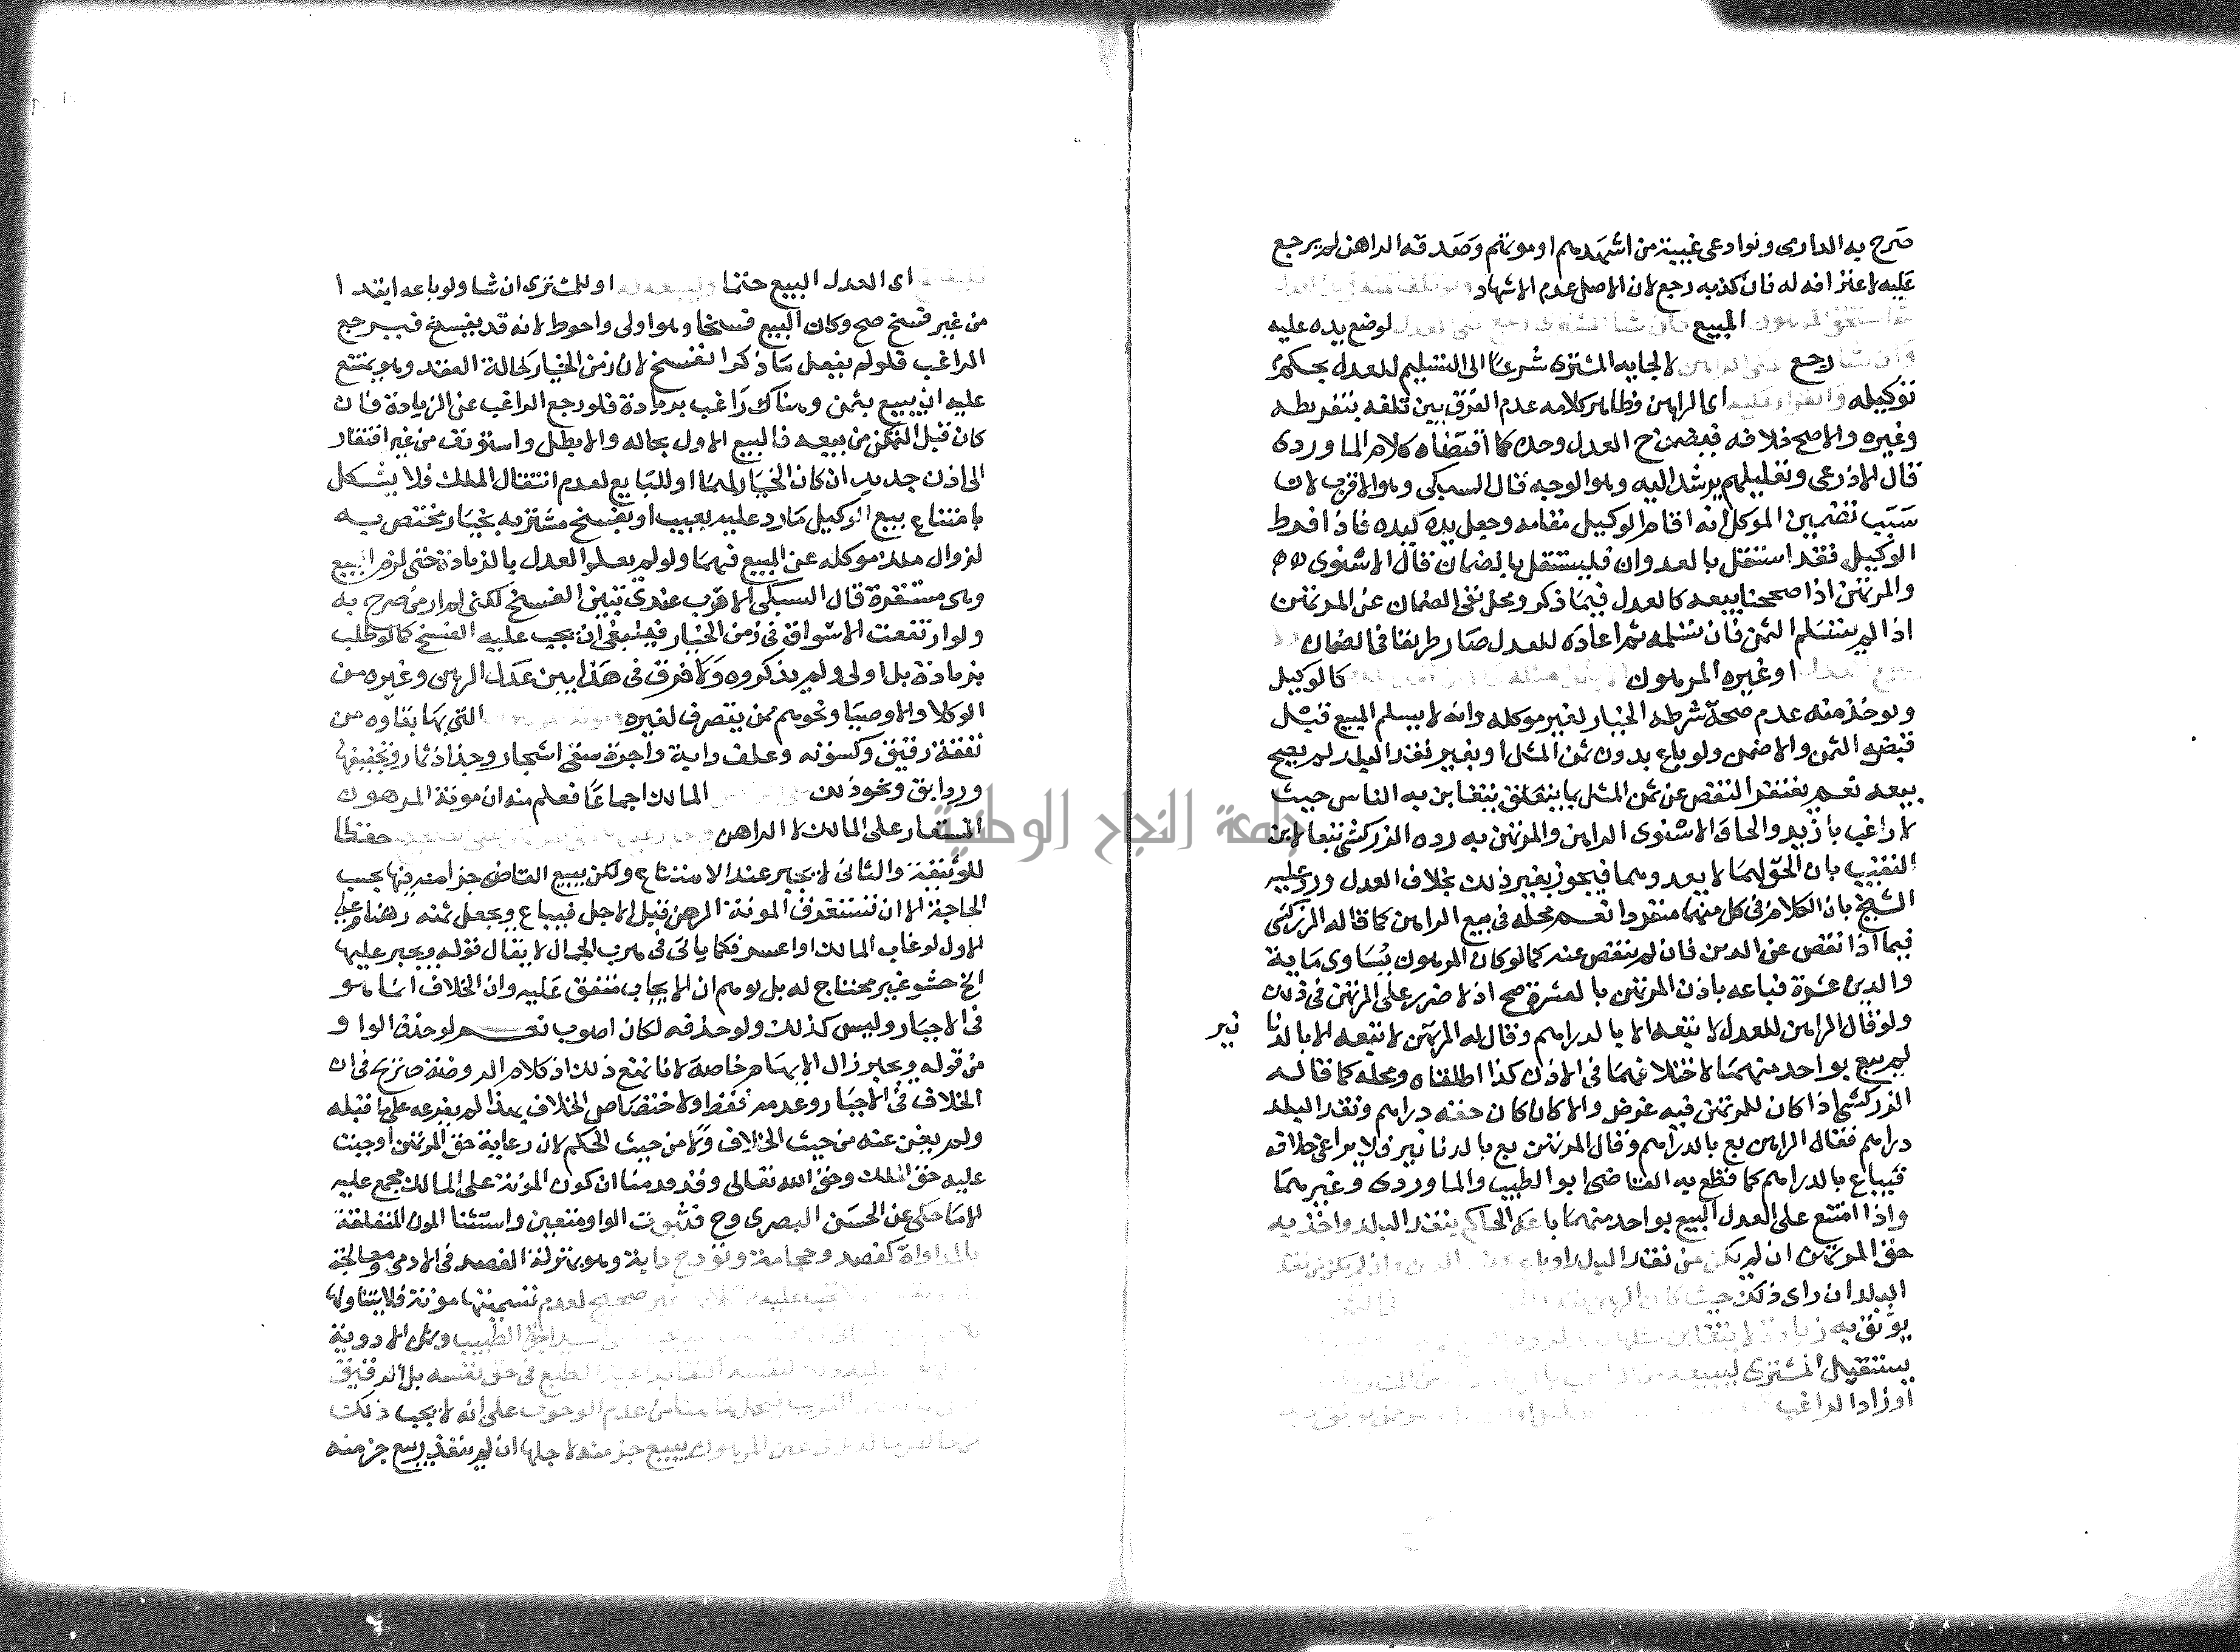 صرح به الدارمى ونوادعى غيبة من اشهدهم او موتهم وصدقه الراهن لم يرجع
عليه لاعترافه له فان كذبه رجع لان الاصل عدم الاشهاد
المبيع فان شا لوضع يده عليه
وان شا رجع على الراهن لالجايه المشترى شرعا الى التسليم للعدل بحكم
توكيله والقرار عليه اى الراهن وظاهر كلامه عدم الفرق بين تلفه بتفريطه
وغيره والاصح خلافه فيضمن ح العدل وحده كما اقتضاه كلام الماوردى
قال الاذرعى وتعليلهم يرشد اليه وهو الوجه قال السبكى وهو الاقرب لان
سبب تضمين الموكل انه اقام الوكيل مقامه وجعل يده كيده فاذا فرط
الوكيل فقد استقل بالعدوان فليستقل بالضمان قال الاسنوى
والمرتهن اذا صححنا بيعه كالعدل فيما ذكر ومحل نفى الضمان عن المرتهن
اذا لم يتسلم الثمن فان تسلمه ثم اعاده للعدل صار طريقا فى الضمان
او غيره المرهون كالوكيل
ويوخذ منه عدم صحة شرطه الخيار لغير موكله وانه لا يسلم المبيع قبل
قبضه الثمن والاضمن ولو باع بدون ثمن المثل او بغير نقد البلد لم يصح
بيعه نعم يغتفر النقص عن ثمن المثل بما يتغابن به الناس حيث
لا راغب بازيد والحاق الاسنوى الراهن والمرتهن به رده الزركشى تبعا لابن
النقيب بان الحق لهما لا يعدوهما فيجوز بغير ذلك بخلاف العدل ورد عليه
الشيخ بان الكلام فى كل منهما منفردا نعم محله فى بيع الراهن كما قاله الزركشى
فيما اذا نقص عن الدين فان لم ينقص عنه كما لو كان المرهون يساوى ماية
والدين عشرة فباعه باذن المرتهن بالعشرة صح اذ لا ضرر على المرتهن فى ذلك
ولو قال الراهن للعدل لا تبعه الا بالدراهم وقال له المرتهن لا تبعه الا بالدنا نير
لم يبع بواحد منهما لاختلافهما فى الاذن كذا اطلقاه ومحله كما قاله
الزركشى اذا كان للمرتهن فيه غرض والا كان كان حقه دراهم ونقد البلد
دراهم فقال الراهن بع بالدراهم وقال المرتهن بع بالدنانير فلا يراعى خلافه
فيباع بالدراهم كما قطع به القاضى ابو الطيب والماوردى وغيرهما
واذا امتنع على العدل البيع بواحد منهما باعه الحاكم بنقد البلد واخذ به
حق المرتهن ان لم يكن من نقد البلد او باع الدين ان لم يكن من نقد
البلد ان راى ذلك
يوثق به زيادة لا يتغابن
يستقيل المشترى ليبيعه
او زاد الراغب
اى العدل البيع حتما او للمشترى ان شا ولو باعه ابتدا
من غير فسخ صح وكان البيع فسخا وهو اولى واحوط لانه قد يفسخ فيرجع
الراغب فلو لم يفعل ما ذكر انفسخ لان زمن الخيار كحالة العقد وهو يمتنع
عليه ان يبيع بثمن وهناك راغب بزيادة فلو رجع الراغب عن الزيادة فان
كان قبل التمكن من بيعه فالبيع الاول بحاله والا بطل واستونف من غير افتقار
الى اذن جديد ان كان الخيار لهما او للبايع لعدم انتقال الملك فلا يشكل
بامتناع بيع الوكيل ما رد عليه بعيب او بفسخ مشتريه بخيار مختص به
لزوال ملك موكله عن المبيع فيهما ولو لم يعلم العدل بالزيادة حتى لزم البيع
وهى مستقرة قال السبكى الاقرب عندى تبين الفسخ لكنى لم ار من صرح به
ولو ارتفعت الاسواق فى زمن الخيار فينبغى ان يجب عليه الفسخ كما لو طلب
بزيادة بل اولى ولم يذكروه ولا فرق فى هذا بين عدل الرهن وغيره من
الوكلا والاوصيا ونحوهم ممن يتصرف لغيره التى بها بقاوه من
نفقة رقيق وكسوته وعلف دابة واجرة سقى اشجار وجذاذ ثمار وتجفيفها
ورد ابق ونحو ذلك المالك اجماعا فعلم منه ان مونة المرهون
المستعار على المالك لا الراهن حفظا
للوثيقة والثانى لا يجبر عند الامتناع ولكن يبيع القاضى جزا منه فيها بحسب
الحاجة الا ان تستغرق المونة الرهن قبل الاجل فيباع ويجعل ثمنه رهنا وعلى
الاول لو غاب المالك او اعسر فكما ياتى فى هرب الجمال لا يقال قوله ويجبر عليها
الخ حشو غير محتاج له بل يوهم ان الايجاب متفق عليه وان الخلاف انما هو
فى الاجبار وليس كذلك ولو حذفه لكان اصوب نعم لو حذف الواو
من قوله ويجبر زال الايهام خاصة لانا نمنع ذلك اذ كلام الروضة صريح فى ان
الخلاف فى الاجبار وعدمه فقط ولاختصاص الخلاف بهذا لم يفرعه على ما قبله
ولم يغن عنه من حيث الخلاف ولا من حيث الحكم لان رعاية حق المرتهن اوجبت
عليه حق الملك وحق الله تعالى وقد قدمنا ان كون المؤنة على المالك مجمع عليه
الا ما حكى عن الحسن البصرى وح فثبوت الواو متعين واستثنا المون المتعلقة
بالمداواة كفصد وحجامة وتوديج دابة وهو بمنزلة الفصد فى الادمى ومعالجة
لا تجب عليه صحيح لعدم تسميتها مونة فلا يتناولها
اجرة الطبيب وثمن الادوية
الطبع فى حق نفسه بل الرقيق
عدم الوجوب على انه لا يجب ذلك
من عين المرهون يبيع جز منه لاجلها ان لم يتعذر بيع جز منه
جامعة النجاح الوطنية